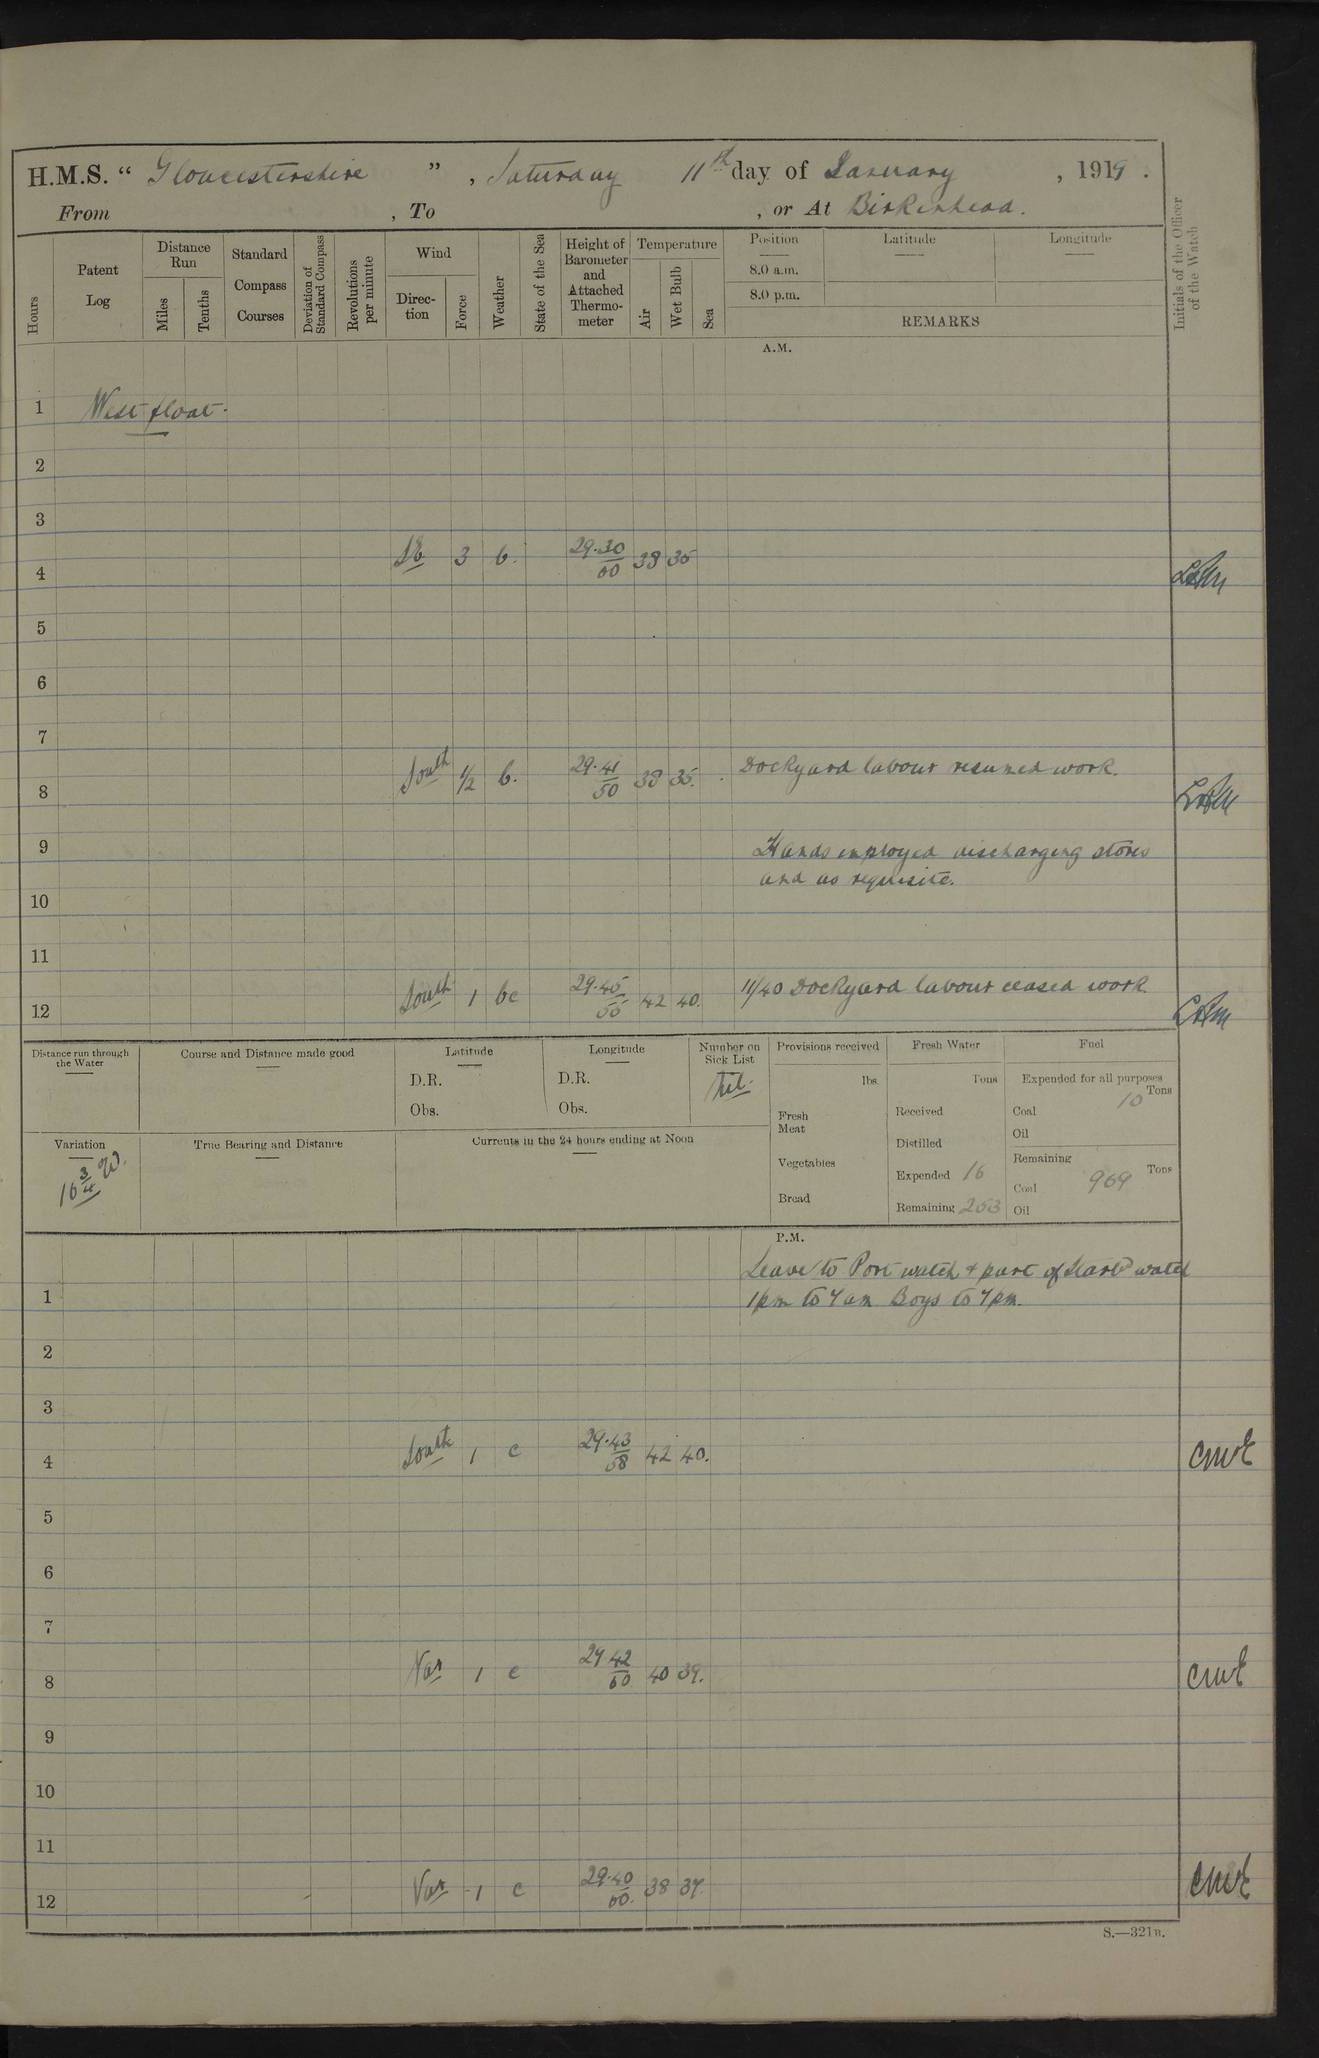 H.M.S. “ Gloucestershire ” , Saturday 11th day of January , 1919 .
From , To , or At Birkenhead.
Hours
Patent Log
Distance Run
Miles
Tenths
Standard Compass Courses
Deviation of Standard Compass
Revolutions per minute
Wind
Direc-tion
Force
Weather
State of the Sea
Height of Barometer and Attached Thermo-meter
Temperature
Air
Wet Bulb
Sea
Position
Latitude
Longitude
8.0 a.m.
8.0 p.m.
REMARKS
Initials of the Officer of the Watch
A.M.
1 West float.
2
3
4 3 b. 29.30 60 38 35
5
6
7
8 South 1/2 b. 29.41 50 38 35. Dockyard labour resumed work.
9 Hands employed discharging stores
and as requisite.
10
11
12 South 1 bc 29.45 55 42 40. 11/40 Dockyard labour ceased work.
Distance run through the Water
Course and Distance made good
Latitude
D.R.
Obs.
Longitude
D.R.
Obs.
Number on Sick List
Nil.
Provisions received
lbs.
Fresh Meat
Vegetables
Bread
Fresh Water
Tons
Received
Distilled
Expended 16
Remaining 253
Fuel
Expended for all purposes
Tons
Coal 10
Oil
Remaining
Tons
Coal 969
Oil
Variation
16 3/4 W.
True Bearing and Distance
Currents in the 24 hours ending at Noon
P.M.
Leave to Port watch + part of Starbd watch
1 1pm to 7am Boys to 7pm.
2
3
4 South 1 c 29.43 58 42 40. CMWE
5
6
7
8 Var 1 c 29 42 60 40 39. CMWE
9
10
11
12 Var 1 c 29.40 60. 38 37. CMWE
S.—321B.